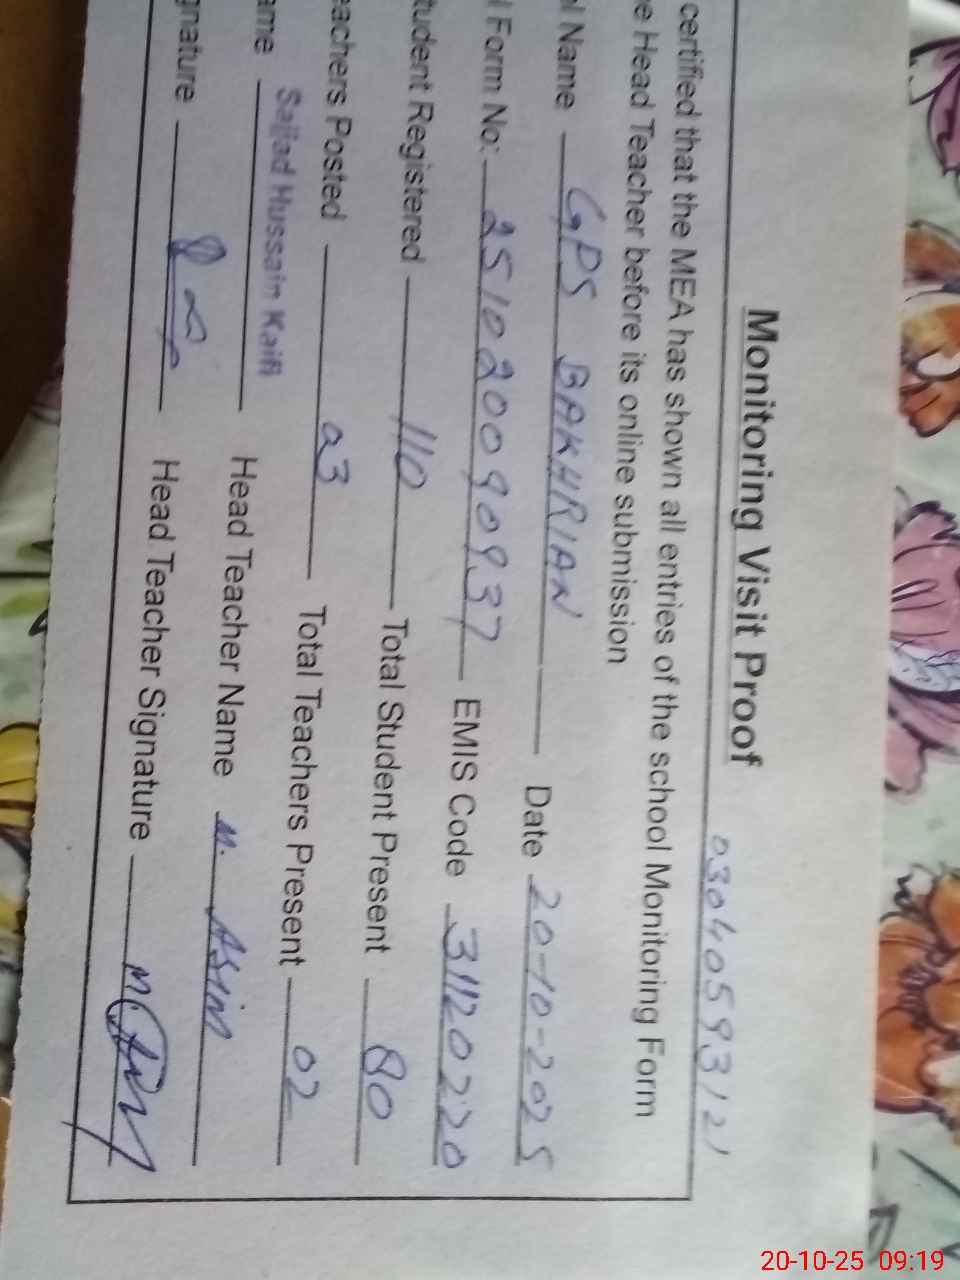 Monitoring Visit Proof
03040593121
certified that the MEA has shown all entries of the school Monitoring Form
e Head Teacher before its online submission
l Name GPS BAKHRIAN Date 20-10-2025
l Form No: 251020090937 EMIS Code 31120220
tudent Registered 110 Total Student Present 80
eachers Posted 03 Total Teachers Present 02
ame Sajjad Hussain Kaifi Head Teacher Name M. Asim
gnature Head Teacher Signature
20-10-25 09:19